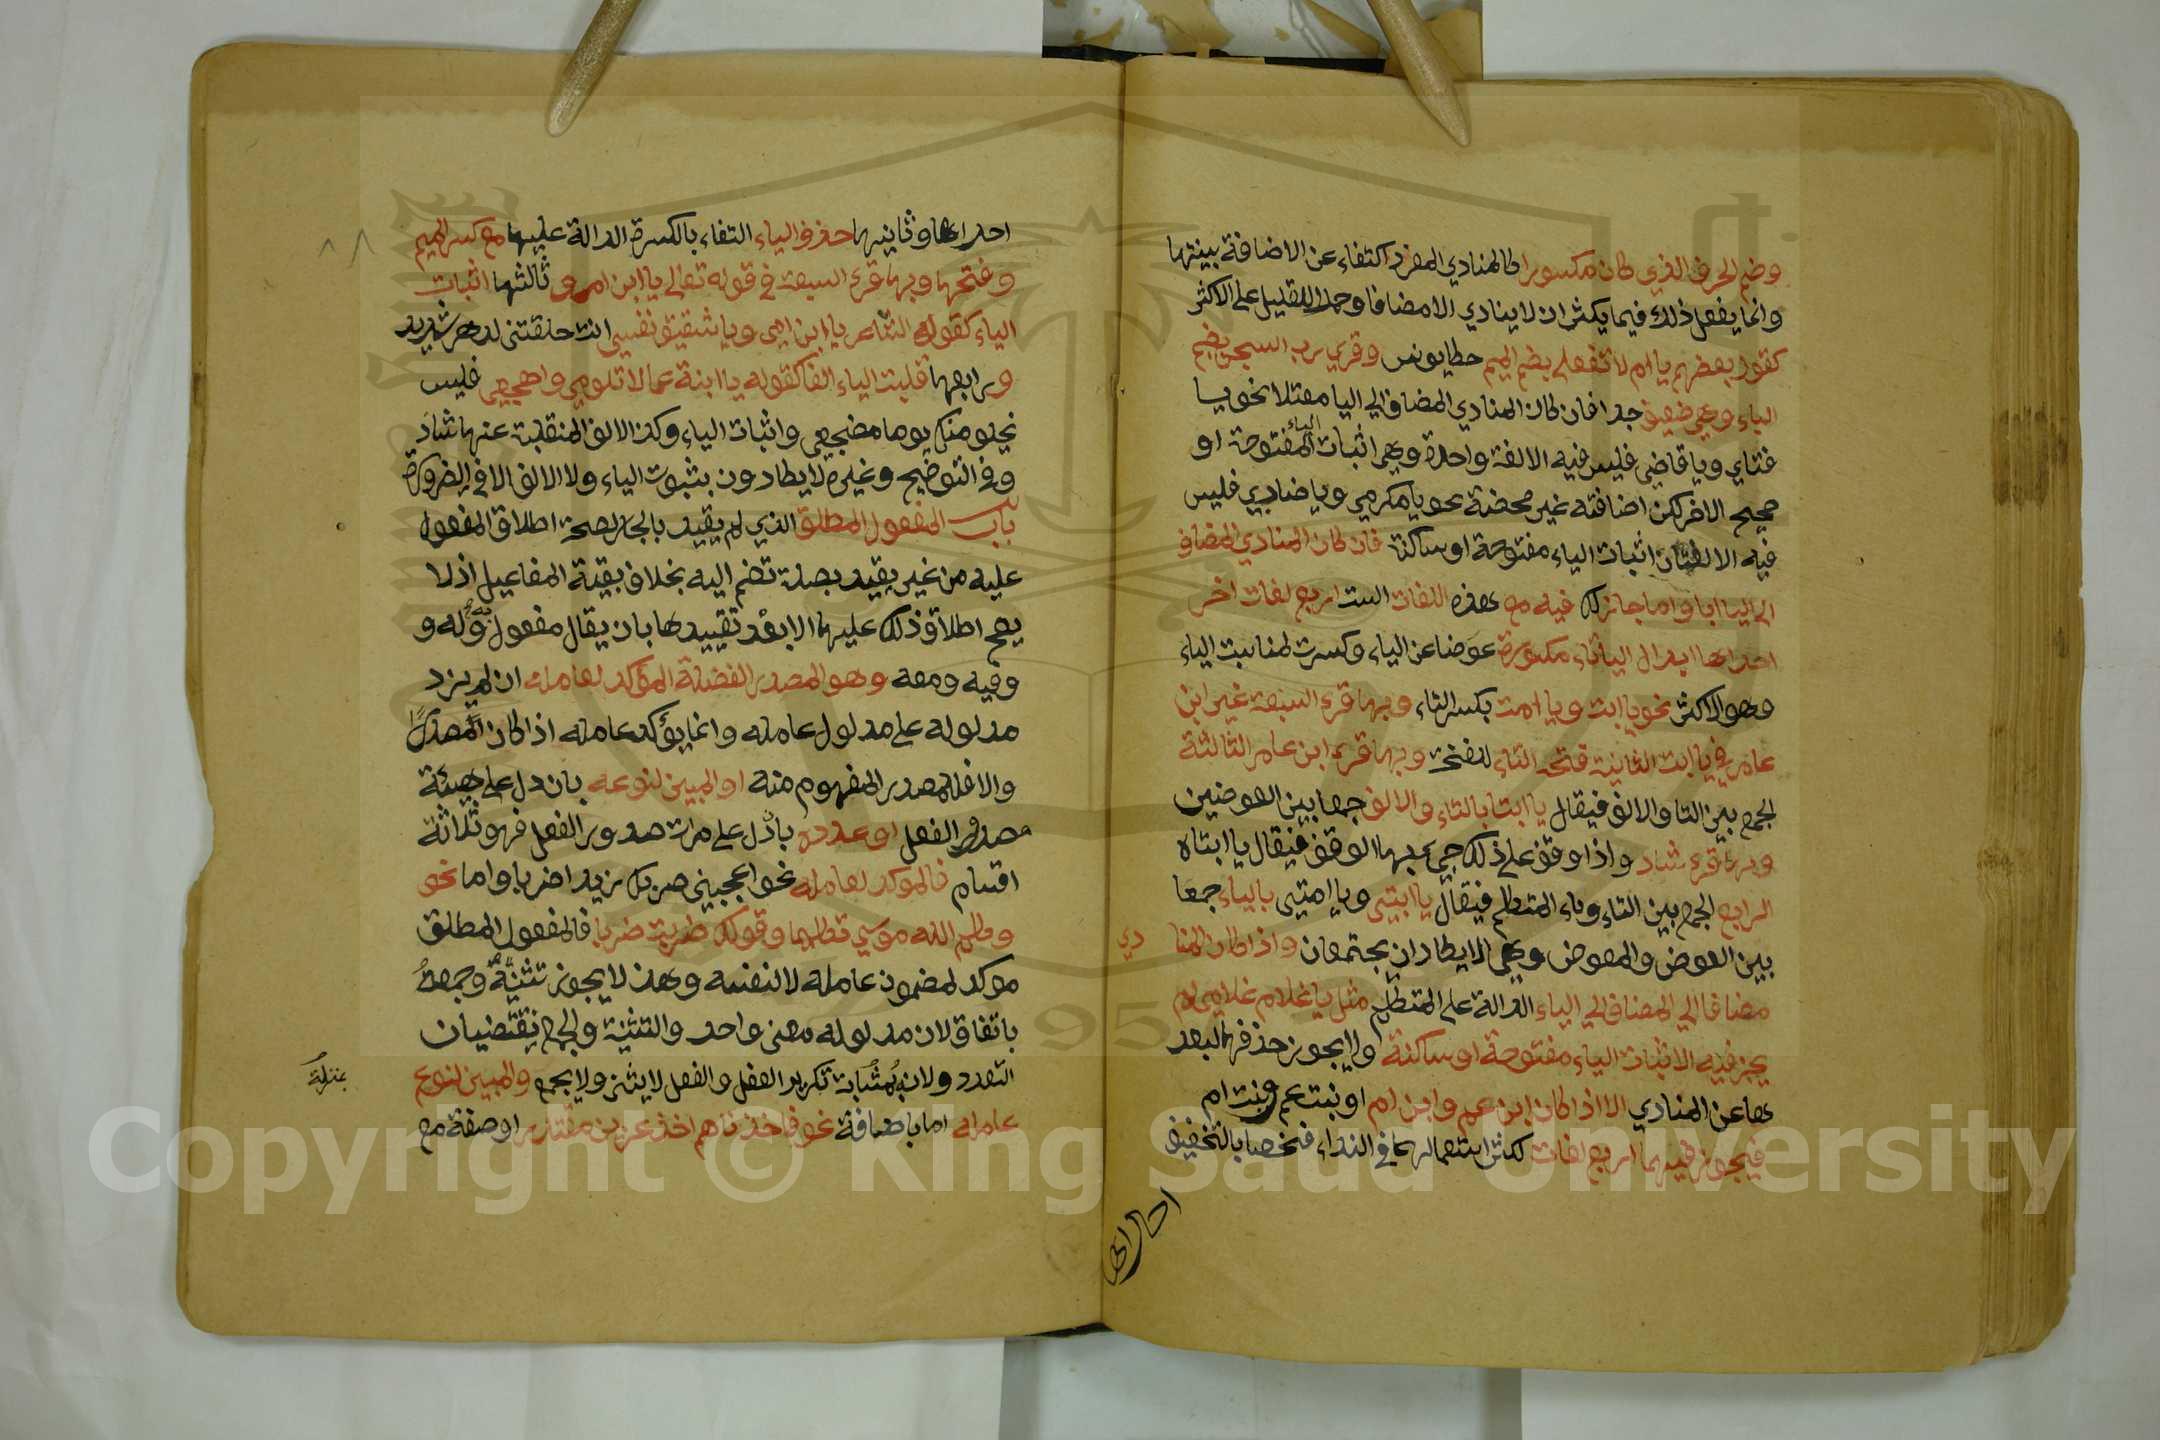 وضم الحرف الذي كان مكسورا كالمنادي المفرد اكتفاء عن الاضافة بينتها
وانما يفعل ذلك فيما يكثر ان لا ينادي الا مضافا وحملا للقليل على الاكثر
كقول بعضهم يا ام لا تفعلي بضم الميم حكايونس وقري رب السجن بضم
الباء وهي ضعيف جدا فان كان المنادي المضاف الي اليا معتلا نحو يا
فتاي ويا قاضي فليس فيه الا لغة واحدة وهي اثبات الياء المفتوحة او
صحيح الاخر لكن اضافته غير محضة نحو يا مكرمي ويا ضاربي فليس
فيه الا لغتان اثبات الياء مفتوحة او ساكنة فان كان المنادي المضاف
الي اليا ابا واما جاز لك فيه مع هذه اللغات الست اربع لغات اخر
احداها ابدال الياتاء مكسورة عوضا عن الياء وكسرت لمناسبت الياء
وهو الاكثر نحو يا ابت ويا امت بكسر التاء وبها قرء السبعة غير ابن
عامر في يا ابت الثانية فتح التاء للفتحة وبها قرء ابن عامر الثالثة
الجمع بين التا والالف فيقال يا ابتا بالتاء والالف جمعا بين العوضين
وبها قرء شاذ واذا وقف على ذلك جيء بها الوقف فيقال يا ابتاه
الرابع الجمع بين التاء وياء المتكلم فيقال يا ابتي ويا امتي بالياء جمعا
بين العوض والمعوض وهي لا يكادان يجتمعان واذا كان المنا دي
مضافا الي المضاف الي الياء الدالة على المتكلم مثل يا غلام غلامي لم
يجز فيه الا اثبات الياء مفتوحة او ساكنة ولا يجوز حذفها لبعد
ها عن المنادي الا اذا كان ابن عم وابن ام او بنت عم وبنت ام
فيجوز فيهما اربع لغات لكثر استعمالهما في النداء فخصا بالتخفيف
احداها
احداها وثانيها حذف الياء التفاء بالكسرة الدالة عليها مع كسر الميم
وفتحها وبها قرء السبعة في قوله تعالى يا ابن ام و ثالثها اثبات
الياء كقوله الشاعر يا ابن امي ويا شقيق نفسي انت خلفتني لدهر شديد
ورابعها قلبت الياء الفا كقوله يا ابنة عما لا تلومي واهجعي فليس
يخلو منك يوما مضجعي واثبات الياء وكذا الالف المنقلبة عنها شاذ
وفي التوضيح وغيره لا يكادون بثبوت الياء ولا الالف الا في الضرورة
باب المفعول المطلق الذي لم يقيد بالجار لصحة اطلاق المفعول
عليه من غير يقيد بصلة تضم اليه بخلاف بقية المفاعيل اذ لا
يصح اطلاق ذلك عليها الا بعد تقييدها بان يقال مفعول به وله و
وفيه ومعه وهو المصدر الفضلة المؤكد لعامله ان لم يزد
مدلوله على مدلول عامله وانما يؤكد عامله اذا كان المصدرا
والا فللمصدر المفهوم منه او المبين لنوعه بان دل على هيئة
صدور الفعل او عدده بان دل على مرات صدور الفعل فهو ثلاثة
اقسام فالموكد لعامله نحو اعجبني ضربك زيدا ضربا واما نحو
وكلم الله موسي تكليما وقولك ضربت ضربا فالمفعول المطلق
موكد لمضمون عامله لا لنفسه وهذ لا يجوز تثنيته وجمعه
باتفاق لان مدلوله معني واحد والتثنية والجمع يقتضيان
التعدد ولانه بمثابة تكرير الفعل والفعل لا يثني ولا يجمع والمبين لنوع
عامله اما باضافة نحو فاخذناهم اخذ عزيز مقتدر او صفة مع
بمنزلة
Copyright © King Saud University